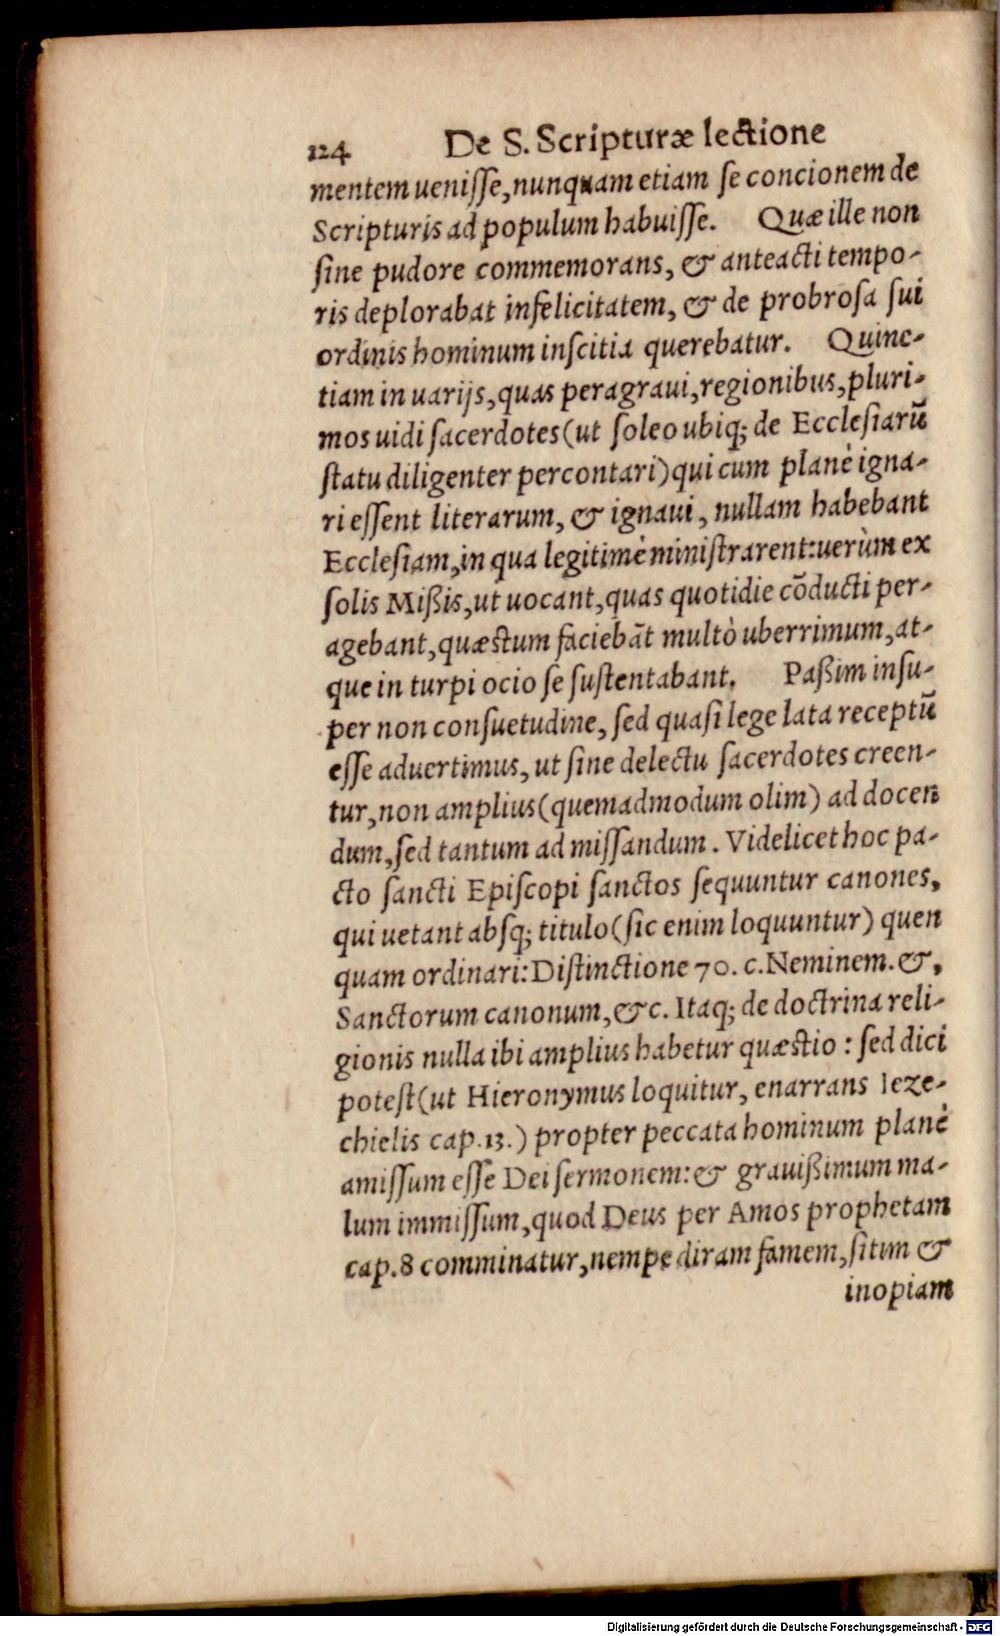 124 De S. Scripturæ lectione
mentem ueniſſe, nunquam etiam ſe concionem de
Scripturis ad populum habuiſſe. Quæ ille non
ſine pudore commemorans, & anteacti tempo-
ris deplorabat infelicitatem, & de probroſa ſui
ordinis hominum inſcitia querebatur. Quinc-
tiam in uarijs, quas peragraui, regionibus, pluri-
mos uidi ſacerdotes (ut ſoleo ubiq; de Eccleſiarũ
ſtatu diligenter percontari) qui cum planè igna-
ri eſſent literarum, & ignaui, nullam habebant
Eccleſiam, in qua legitimè miniſtrarent: uerùm ex
ſolis Mißis, ut uocant, quas quotidie cõducti per-
agebant, quæstum faciebãt multò uberrimum, at-
que in turpi ocio ſe ſuſtentabant. Paßim inſu-
per non conſuetudine, ſed quaſi lege lata receptũ
eſſe aduertimus, ut ſine delectu ſacerdotes creen-
tur, non amplius (quemadmodum olim) ad docen
dum, ſed tantum ad miſſandum. Videlicet hoc pa-
cto ſancti Epiſcopi ſanctos ſequuntur canones,
qui uetant abſq; titulo (ſic enim loquuntur) quen
quam ordinari: Diſtinctione 70. c. Neminem. &,
Sanctorum canonum, &c. Itaq; de doctrina reli-
gionis nulla ibi amplius habetur quæstio: ſed dici
poteſt (ut Hieronymus loquitur, enarrans Ieze-
chielis cap. 13.) propter peccata hominum planè
amiſſum eſſe Dei ſermonem: & grauißimum ma-
lum immiſſum, quod Deus per Amos prophetam
cap. 8 comminatur, nempe diram famem, ſitim &
inopiam
Digitalisierung gefördert durch die Deutsche Forschungsgemeinschaft - DFG